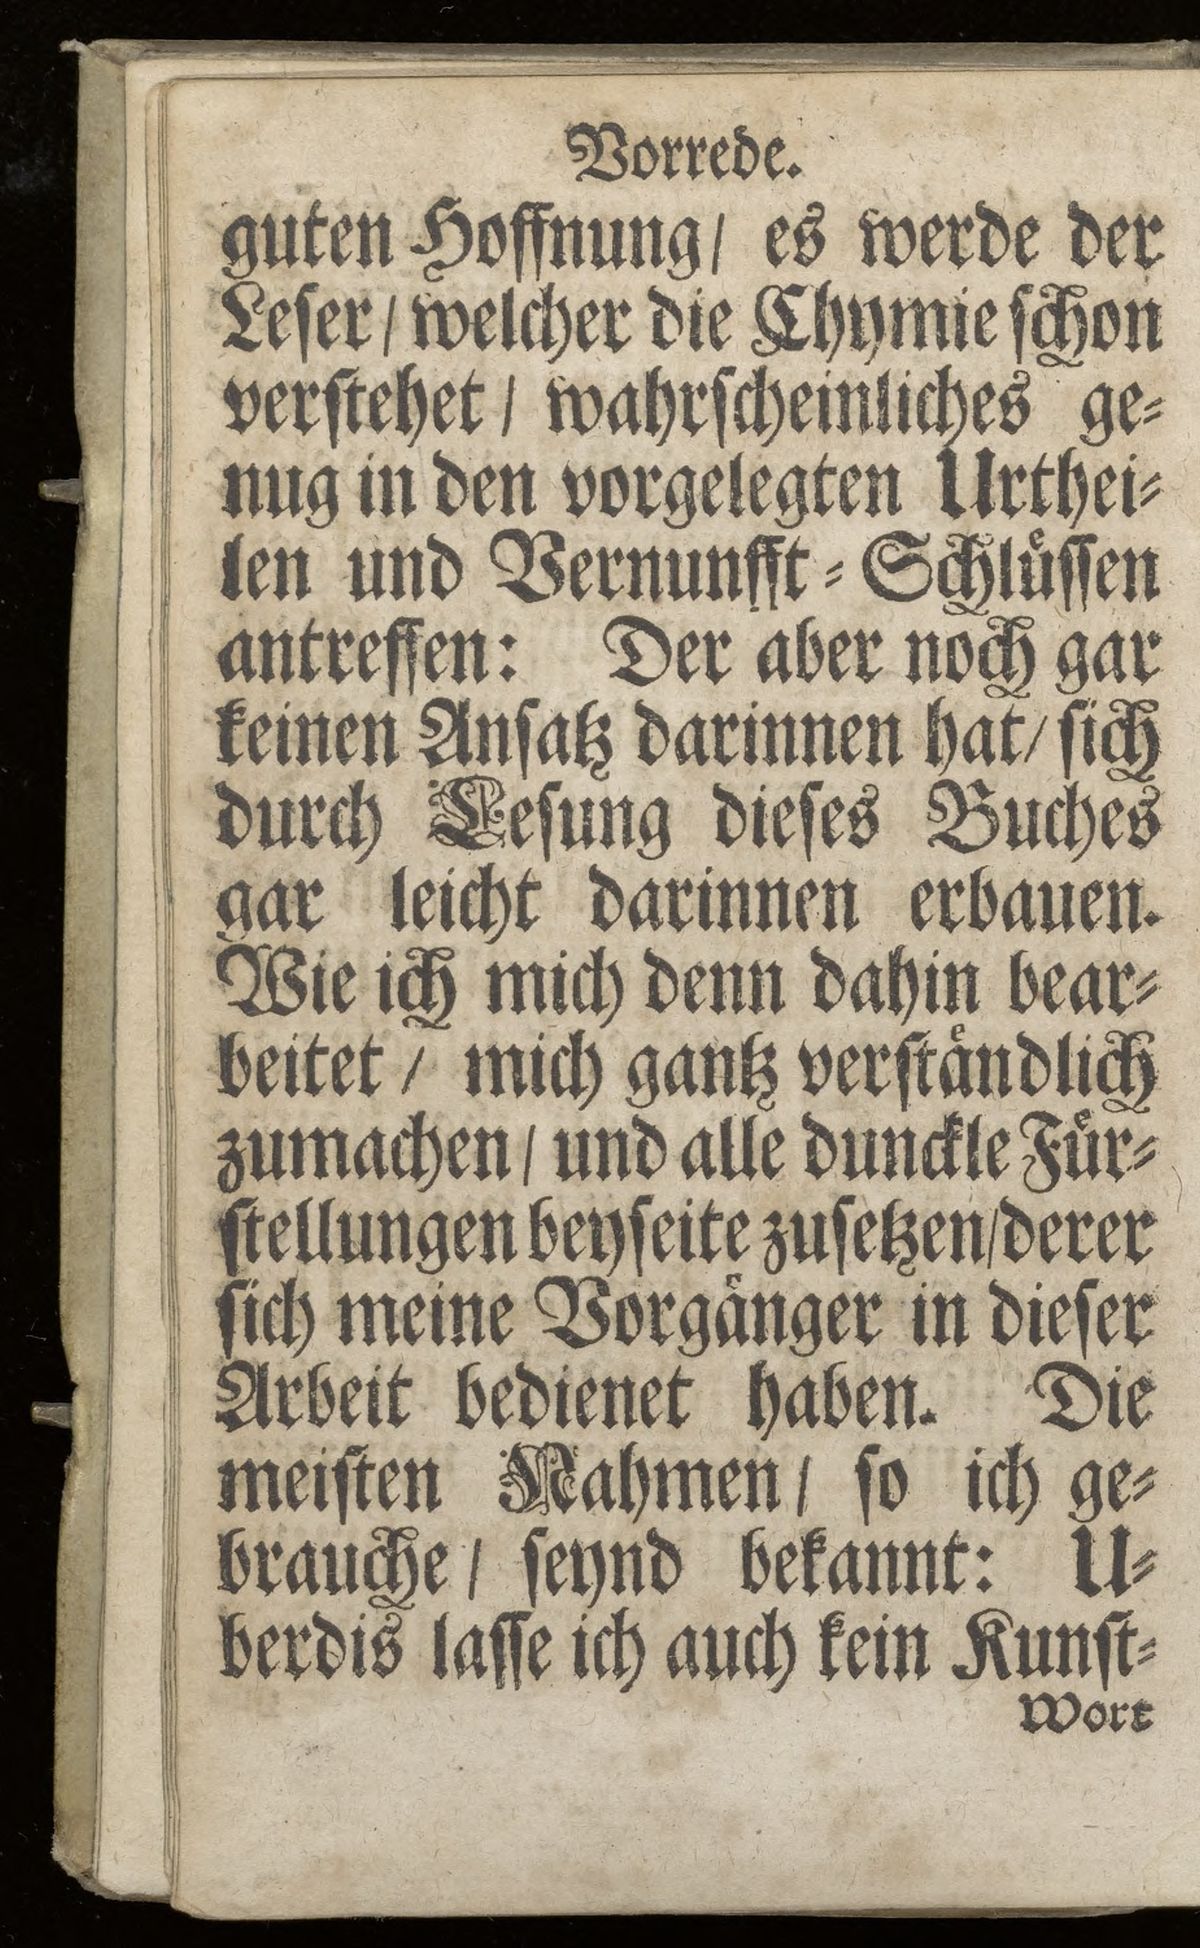 Vorrede.
guten Hoffnung/ es werde der
Leser/ welcher die Chymie schon
verstehet/ wahrscheinliches ge-
nug in den vorgelegten Urthei-
len und Vernunfft-Schlüssen
antreffen: Der aber noch gar
keinen Ansatz darinnen hat/ sich
durch Lesung dieses Buches
gar leicht darinnen erbauen.
Wie ich mich denn dahin bear-
beitet/ mich gantz verständlich
zumachen/ und alle dunckle Für-
stellungen beyseite zusetzen/derer
sich meine Vorgänger in dieser
Arbeit bedienet haben. Die
meisten Nahmen/ so ich ge-
brauche/ seynd bekannt: U-
berdis lasse ich auch kein Kunst-
Wort